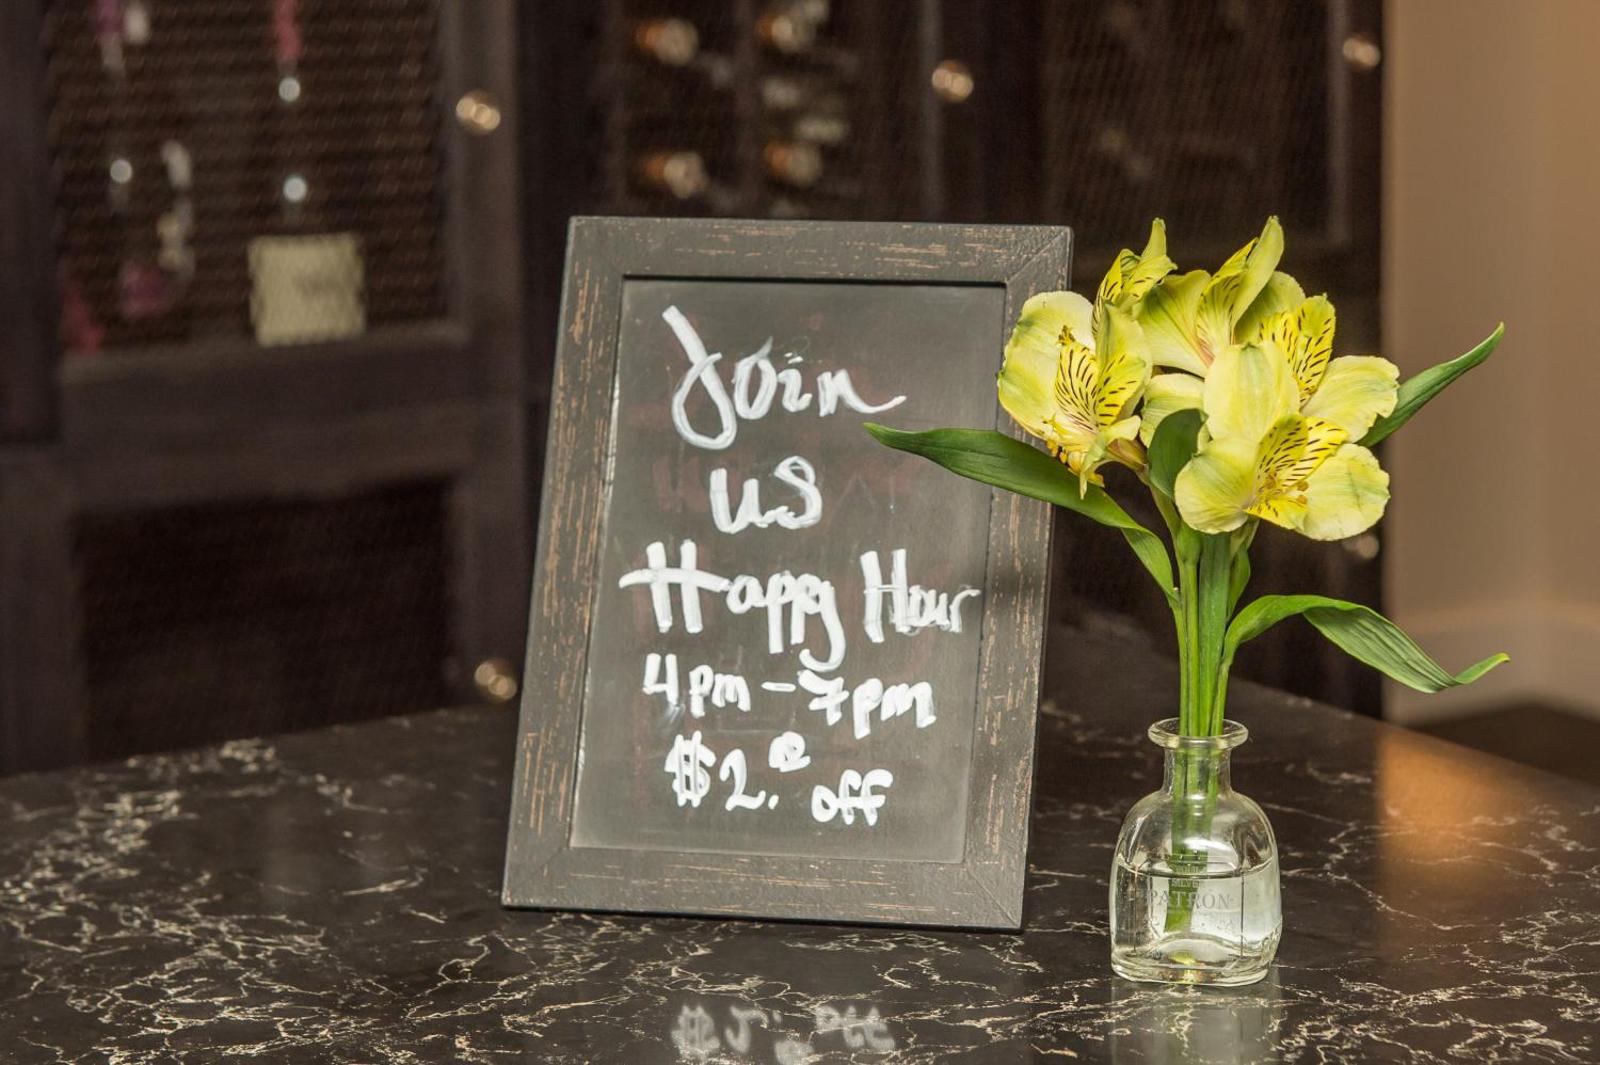 Join
us
Happy Hour
4pm - 7pm
$2.00 off
SILVER
PATRON